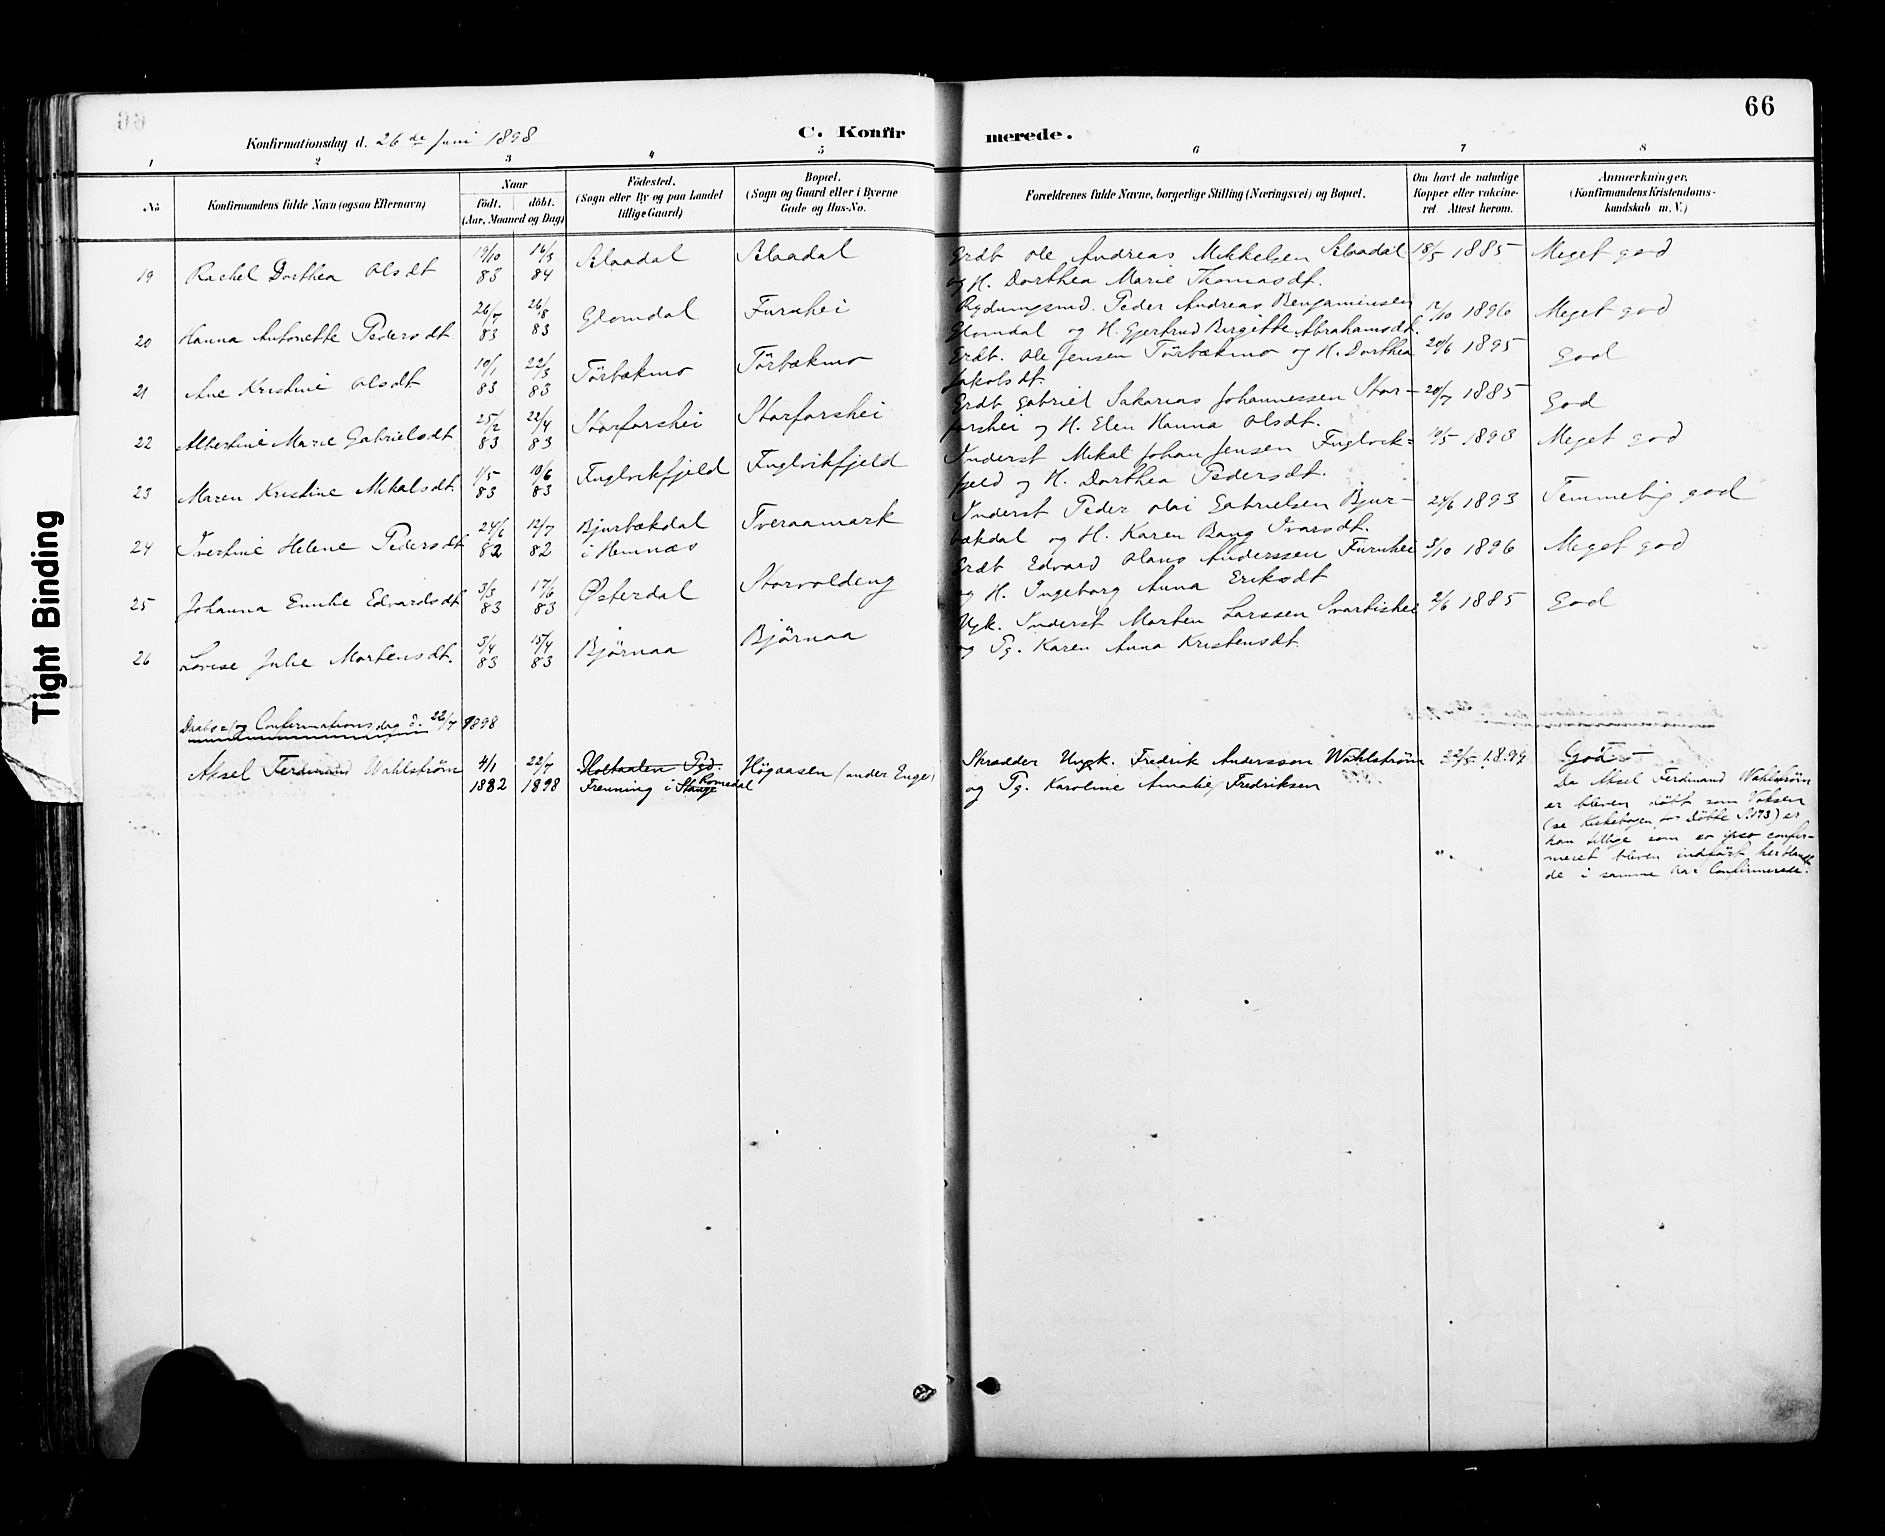 66
Konfirmationsdag d. 26de Juni 1898
C. Konfirmerede.
1 2 3 4 5 6 7 8
No
Konfirmandens fulde Navn (ogsaa Efternavn)
Naar
födt. döbt.
(Aar, Maaned og Dag)
Födested.
(Sogn eller By og paa Landet
tillige Gaard)
Bopæl.
(Sogn og Gaard eller i Byerne
Gade og Hus-No.
Forældrenes fulde Navne, borgerlige Stilling (Næringsvei) og Bopæl.
Om havt de naturlige
Kopper eller vakcine-
ret. Attest herom.
Anmærkninger.
(Konfirmandens Kristendoms-
kundskab m. V.)
19 Rachel Dorthea Olsdt 19/10 83 16/3 84 Blaadal Blaadal Erdt Ole Andreas Mikkelsen Blaadal 18/5 1885 Meget god
og H. Dorthea Marie Thomasdt.
20 Hanna Antonette Pedersdt 26/7 83 26/8 83 Glomdal Furuhei Rydningsmd. Peder Andreas Benjaminsen 12/10 1896 Meget god
Glomdal og H. Gjertrud Birgitte Abrahamsdt.
21 Ane Kristine Olsdt 10/1 83 22/3 83 Törbækmo Törbækmo Erdt. Ole Jensen Törbækmo og H. Dorthea 20/6 1895 God
Jakobsdt.
22 Albertine Marie Gabrielsdt 25/2 83 22/4 83 Storforshei Storforshei Erdt Gabriel Sakarias Johannessen Stor- 20/7 1885 God
forshei og H. Elen Hanna Olsdt.
23 Maren Kristine Mikalsdt. 1/5 83 10/6 83 Fuglvikfjeld Fuglvikfjeld Inderst Mikal Johan Jensen Fuglvik= 19/5 1893 Meget god
fjeld og H. Dorthea Pedersdt.
24 Ivertine Helene Pedersdt 24/6 82 12/7 82 Bjurbækdal Tveraamark Inderst Peder Olai Gabrielsen Bjur- 24/6 1893 Temmelig god
i Hemnæs bækdal og H. Karen Bang Ivarsdt.
25 Johanna Emilie Edvardsdt 3/3 83 17/6 83 Østerdal Storvoldeng Erdt Edvard Olaus Anderssen Furuhei 3/10 1896 Meget god
og H. Ingeborg Anna Eriksdt
26 Lovise Julie Martensdt. 3/4 83 15/4 83 Bjørnaa Bjørnaa Ugk. Inderst Morten Larssen Svartishei 2/6 1885 God
og Pg. Karen Anna Kristensdt
Daabs= og Confirmationsdag d. 22/7 1898
Aksel Ferdinand Wahlstrøm 4/1 1882 22/7 1898 Holtaalen Pgd. Högaasen (under Enge) Skrædder Ungk. Fredrik Andersson Wahlstrøm 22/5 1899 God
Frenning i Stange Romedal og Pg. Karoline Amalie Fredriksen
Da Aksel Ferdinand Wahlstrøm
er bleven döbt som Voksen
(se Kirkebogen for döbte S. 173) er
han tillige som eo ipso confir-
meret bleven indført herblandt
de i samme Aar Confirmerede.
Tight Binding